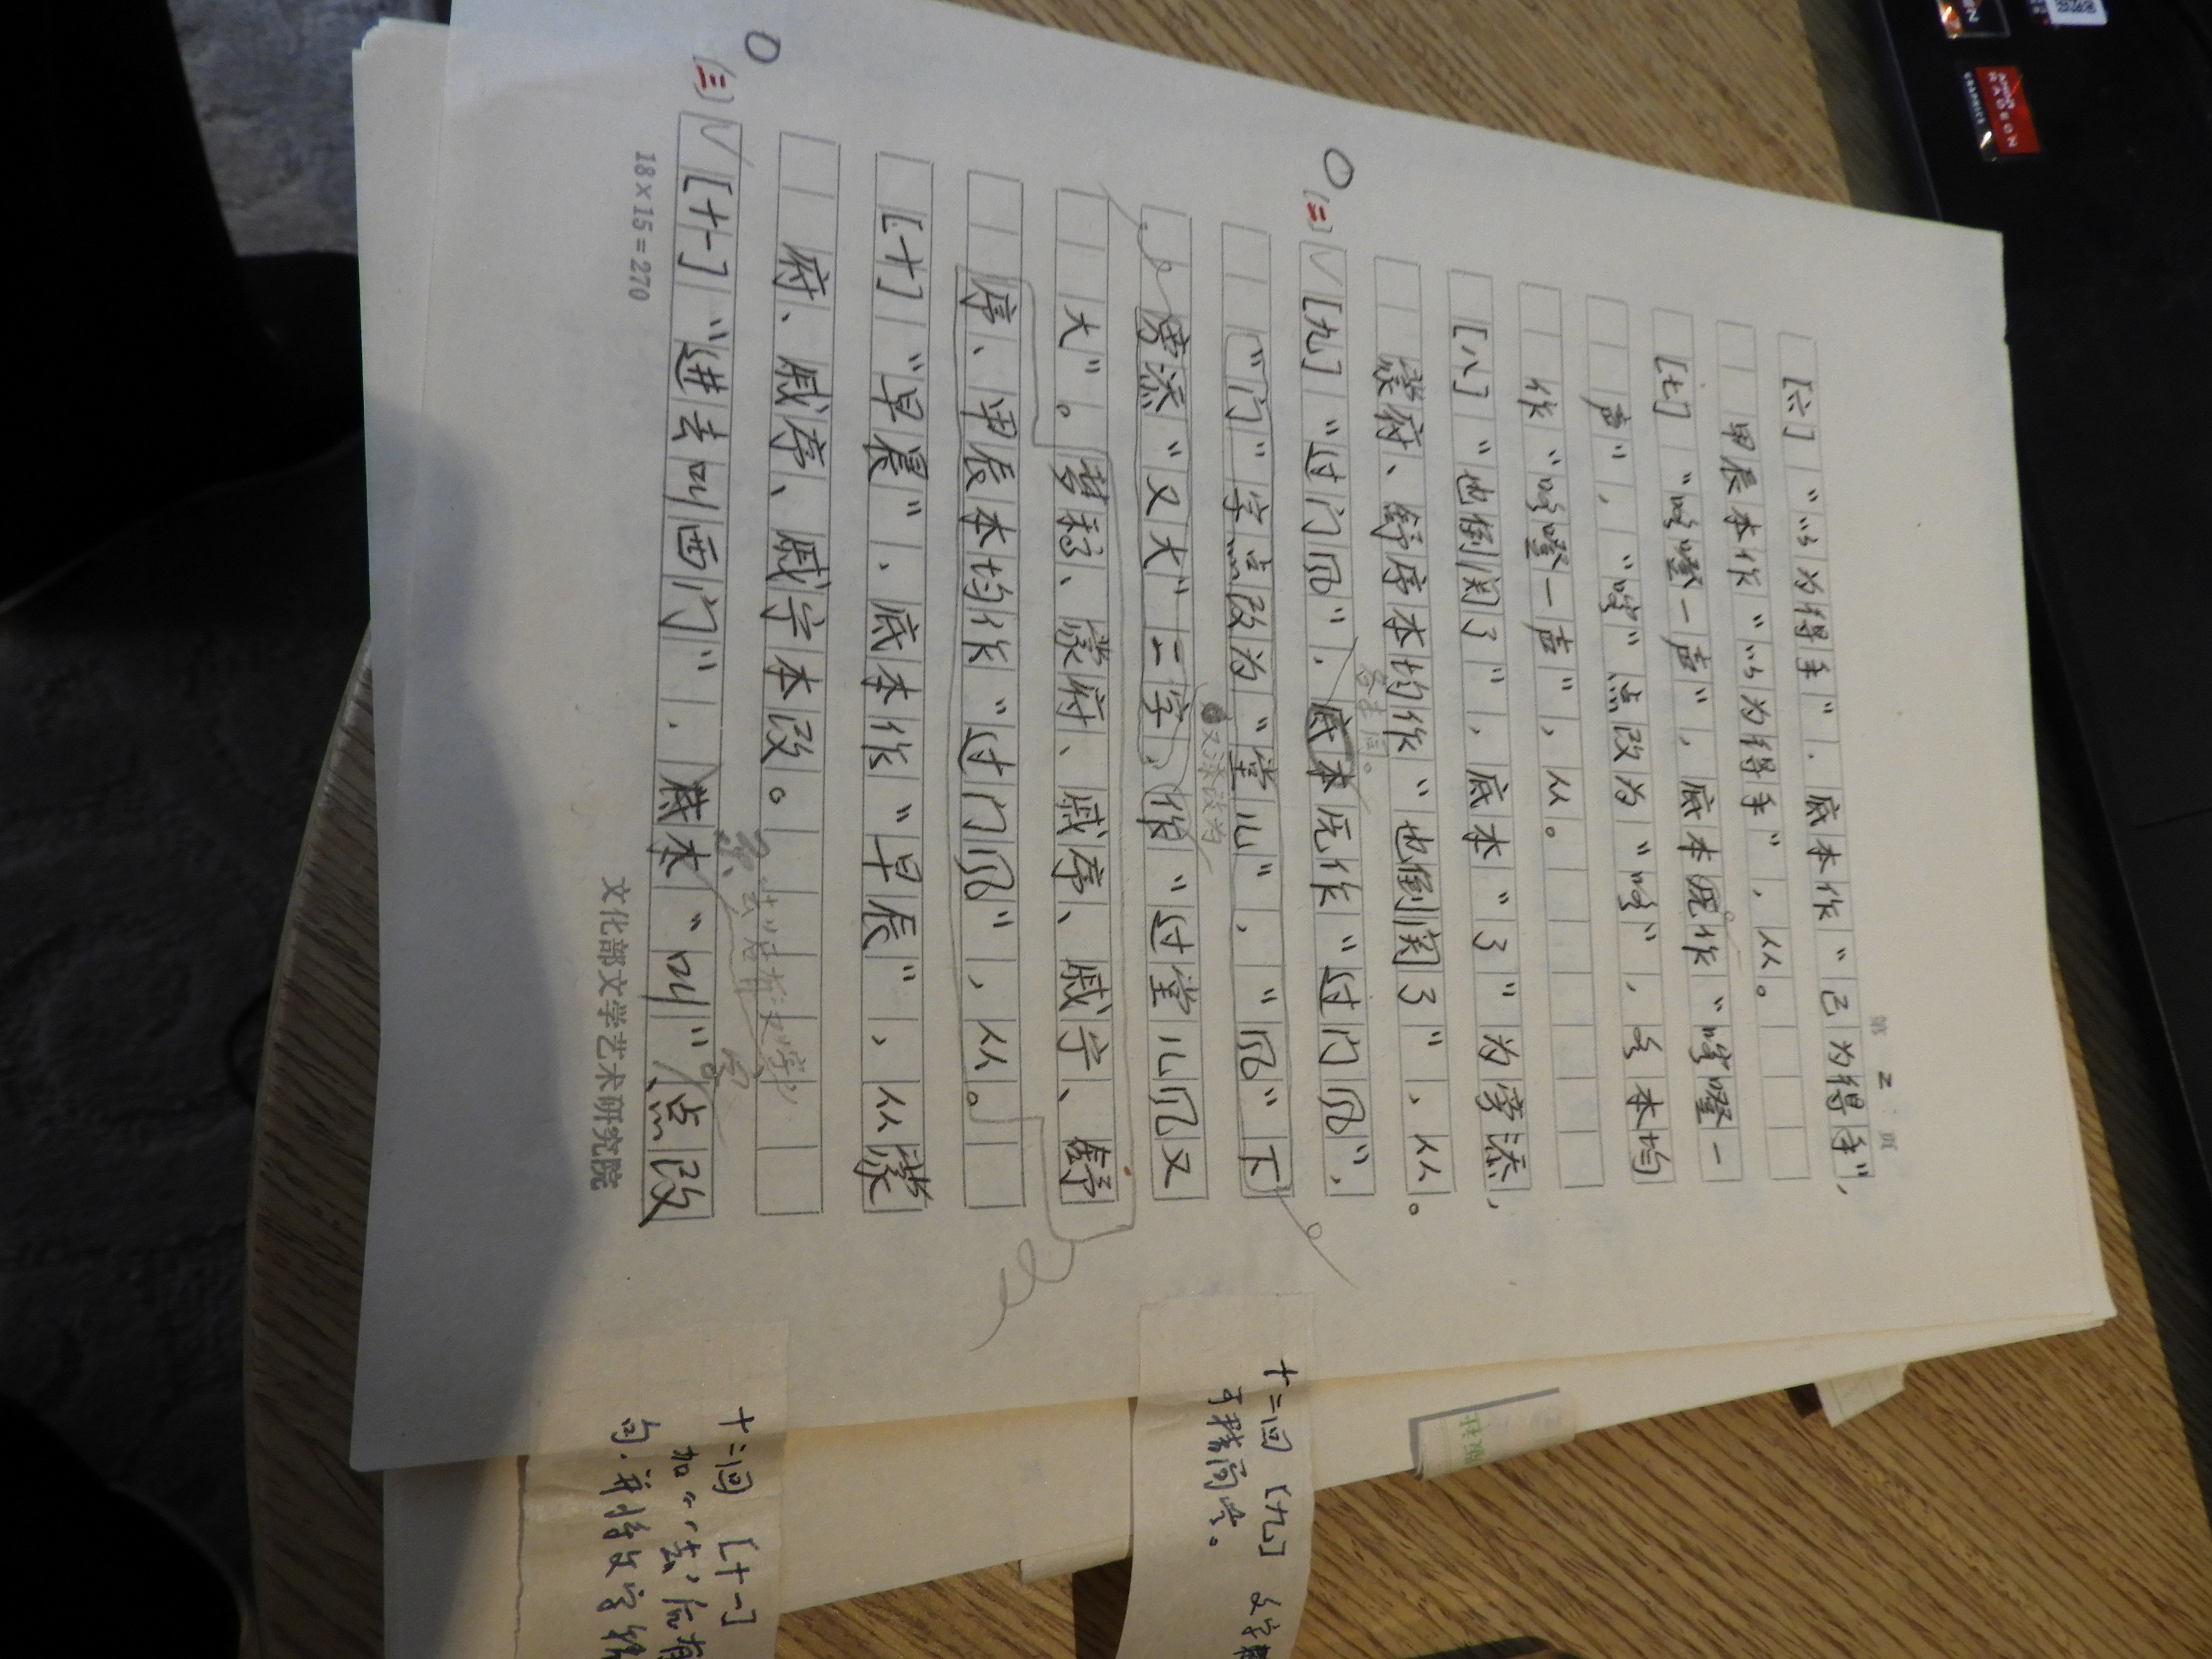 第 2 页
[六] “以为得手”．底本作“已为得手”，
甲辰本作“以为得手”，从。
[七] “咯噔一声”，底本既作“噔噔一
声”，“噔”点改为“咯”，各本均
作“咯噔一声”，从。
[八] “也倒关了”，底本“了”为旁添，
蒙府、舒序本均作“也倒关了”，从。
(二) [九] “过门风”．底本既作“过门风”．
“门”字点改为“堂儿”，“风”下
又添改为
旁添“又大”二字，作“过堂儿风又
大”。梦稿、蒙府、戚序、戚宁、舒
序、甲辰本均作“过门风”，从。
[十] “早晨”．底本作“早辰”，从蒙
府、戚序、戚宁本改。
(三) [十一] “进去叫西门”．底本“叫”点改
18×15=270
文化部文学艺术研究院
十二回 [九]
可我意同此。
十二回 [十一]
加“‘去’后有
句．并将改字作
AMD
RADEON
GRAPHICS